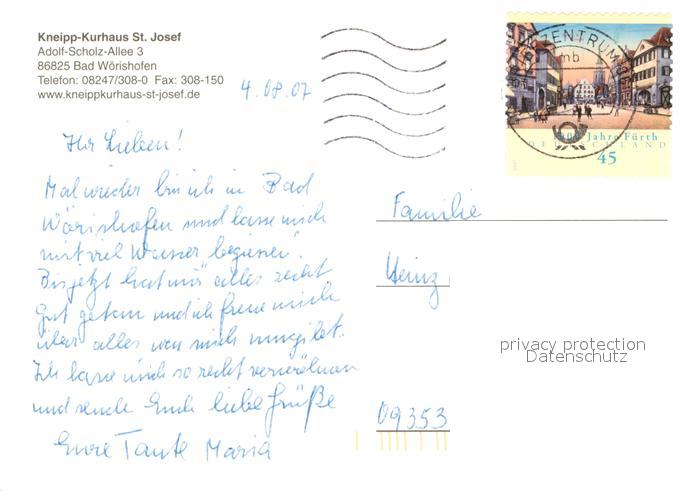 Kneipp-Kurhaus St. Josef
Adolf-Scholz-Allee 3
86825 Bad Wörishofen
Telefon: 08247/308-0 Fax: 308-150
www.kneippkurhaus-st-josef.de
4.08.07
Ihr Lieben!
Mal wieder bin ich in Bad
Wörishofen und lasse mich
mit viel Wasser begiessen.
Bis jetzt hat mir alles recht
gut getan und ich freue mich
über alles was mich umgibt.
Ich lasse mich so recht verwöhnen
und sende Euch liebe Grüße
Eure Tante Maria
BRIEFZENTRUM
mb
1000 Jahre Fürth
DEUTSCHLAND
45
Familie
Heinz
09353
privacy protection
Datenschutz